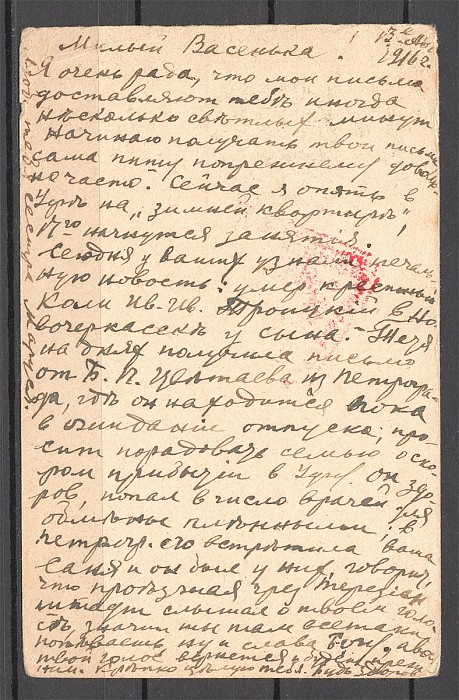 Милый Васенька!
13е
1916 г.
Я очень рада, что мои письма
доставляют тебѣ иногда
нѣсколько свѣтлых минут
Начинаю получать твои письма
сама пишу попрежнему доволь-
но часто. Сейчас я опять в
на „зимней квартирѣ",
17го начнутся занятія.
Сегодня у ваших узнали печаль-
ную новость: умер крестный
Коли Ив. Ив. Троицкій в Но-
вочеркасскѣ у сына. Тетя
на днях получила письмо
от Б. П. Цвѣтаева из Петрогра-
да, гдѣ он находится пока
в ожиданіи отпуска, про-
сит порадовать семью о ско-
ром прибытіи в он здо-
ров, попал в число врачей для
обмѣны плѣнными, в
Петрогр. его встрѣтила ваша
Саня и он был у них, говорил,
что проѣзжая чрез
слышал о твоем голо-
сѣ, значит ты там
ну и слава Богу, авось
твой голос вернется
Крѣпко цѣлую тебя. Будь здоров